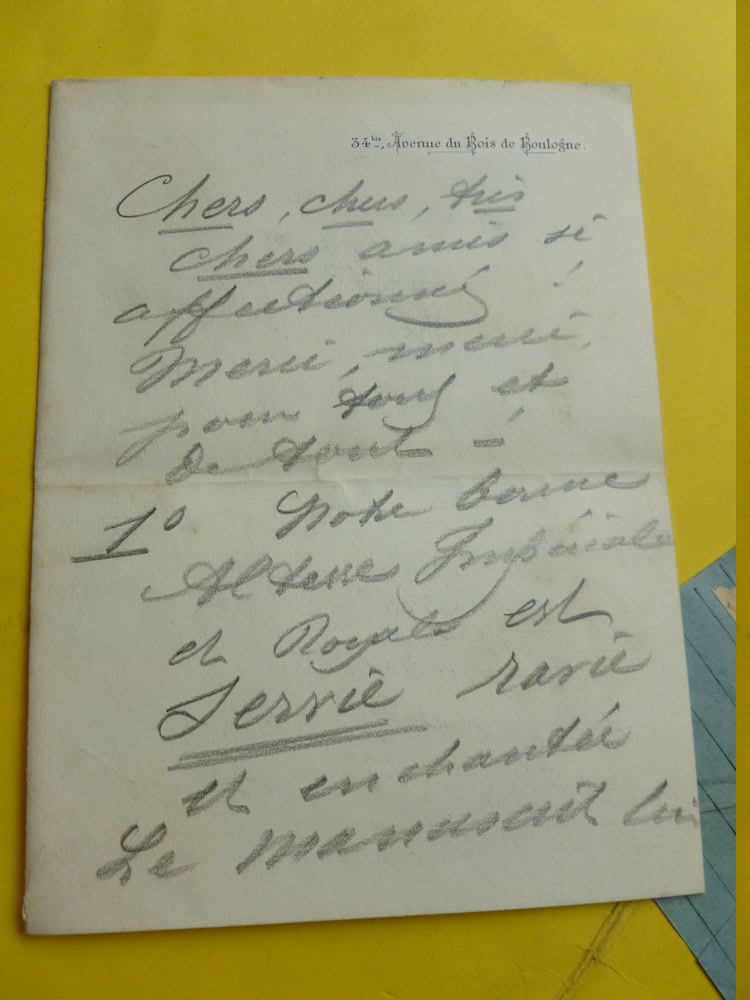 34bis, Avenue du Bois de Boulogne.
Chers, chers, très
chers amis si
affectionnés !
Merci, merci,
pour tout et
de tout !
1° Notre bonne
Altesse Impériale
et Royale est
servie ravie
et enchantée
Le manuscrit lui